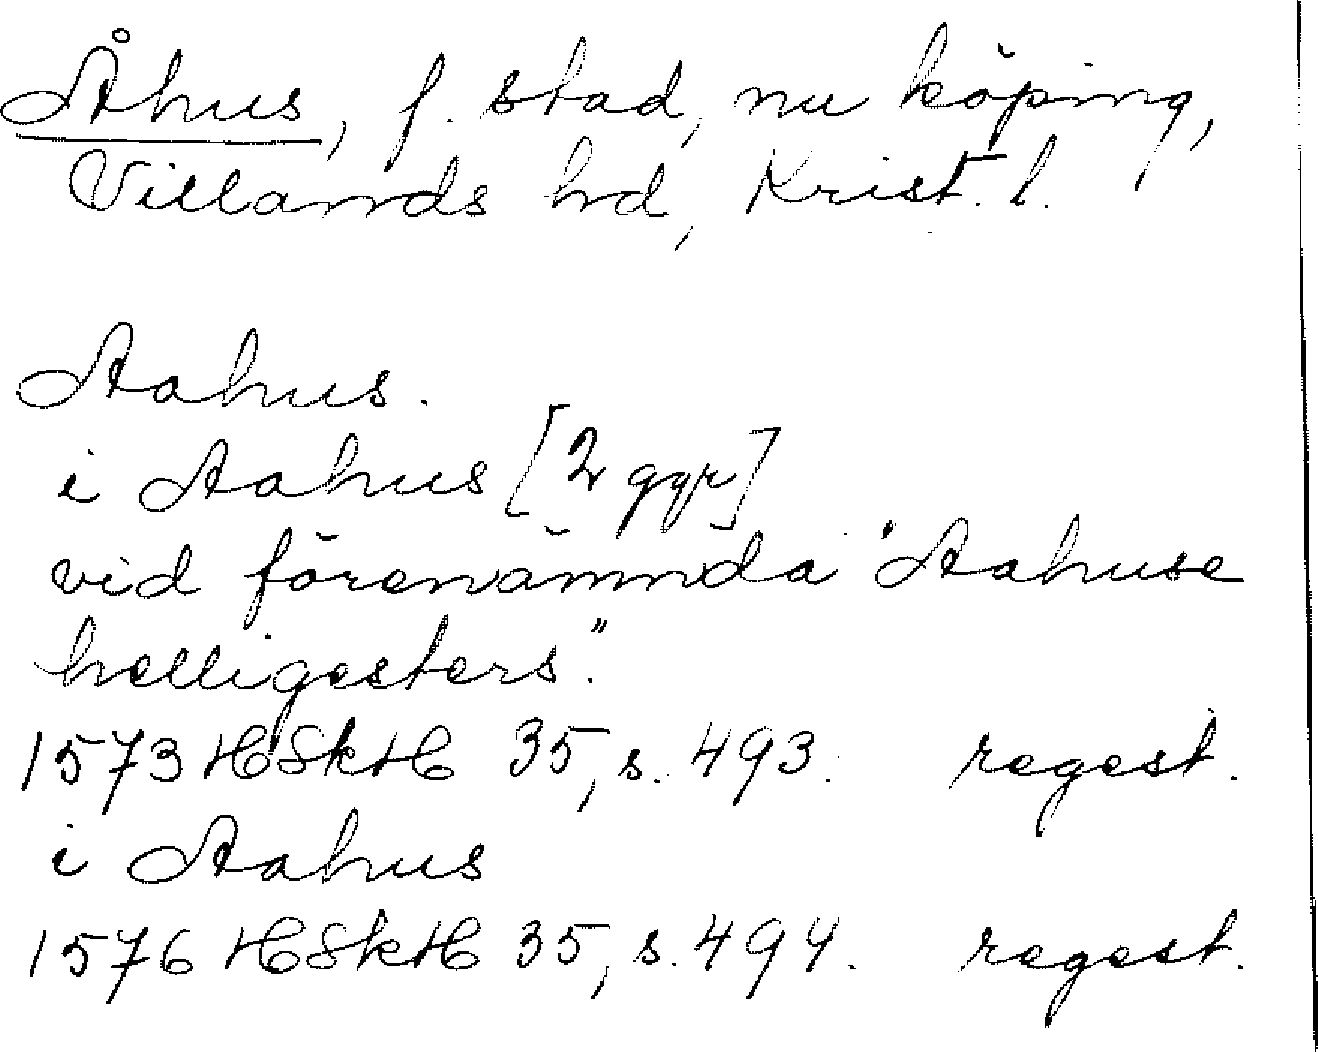 Åhus, f. stad, nu köping,
Villands hd, Krist. l.
Aahus.
i Aahus [2 ggr]
vid förenämnda "Aahuse
helligesters".
1573 HSkH 35, s. 493. regest.
i Aahus
1576 HSkH 35, s. 494. regest.